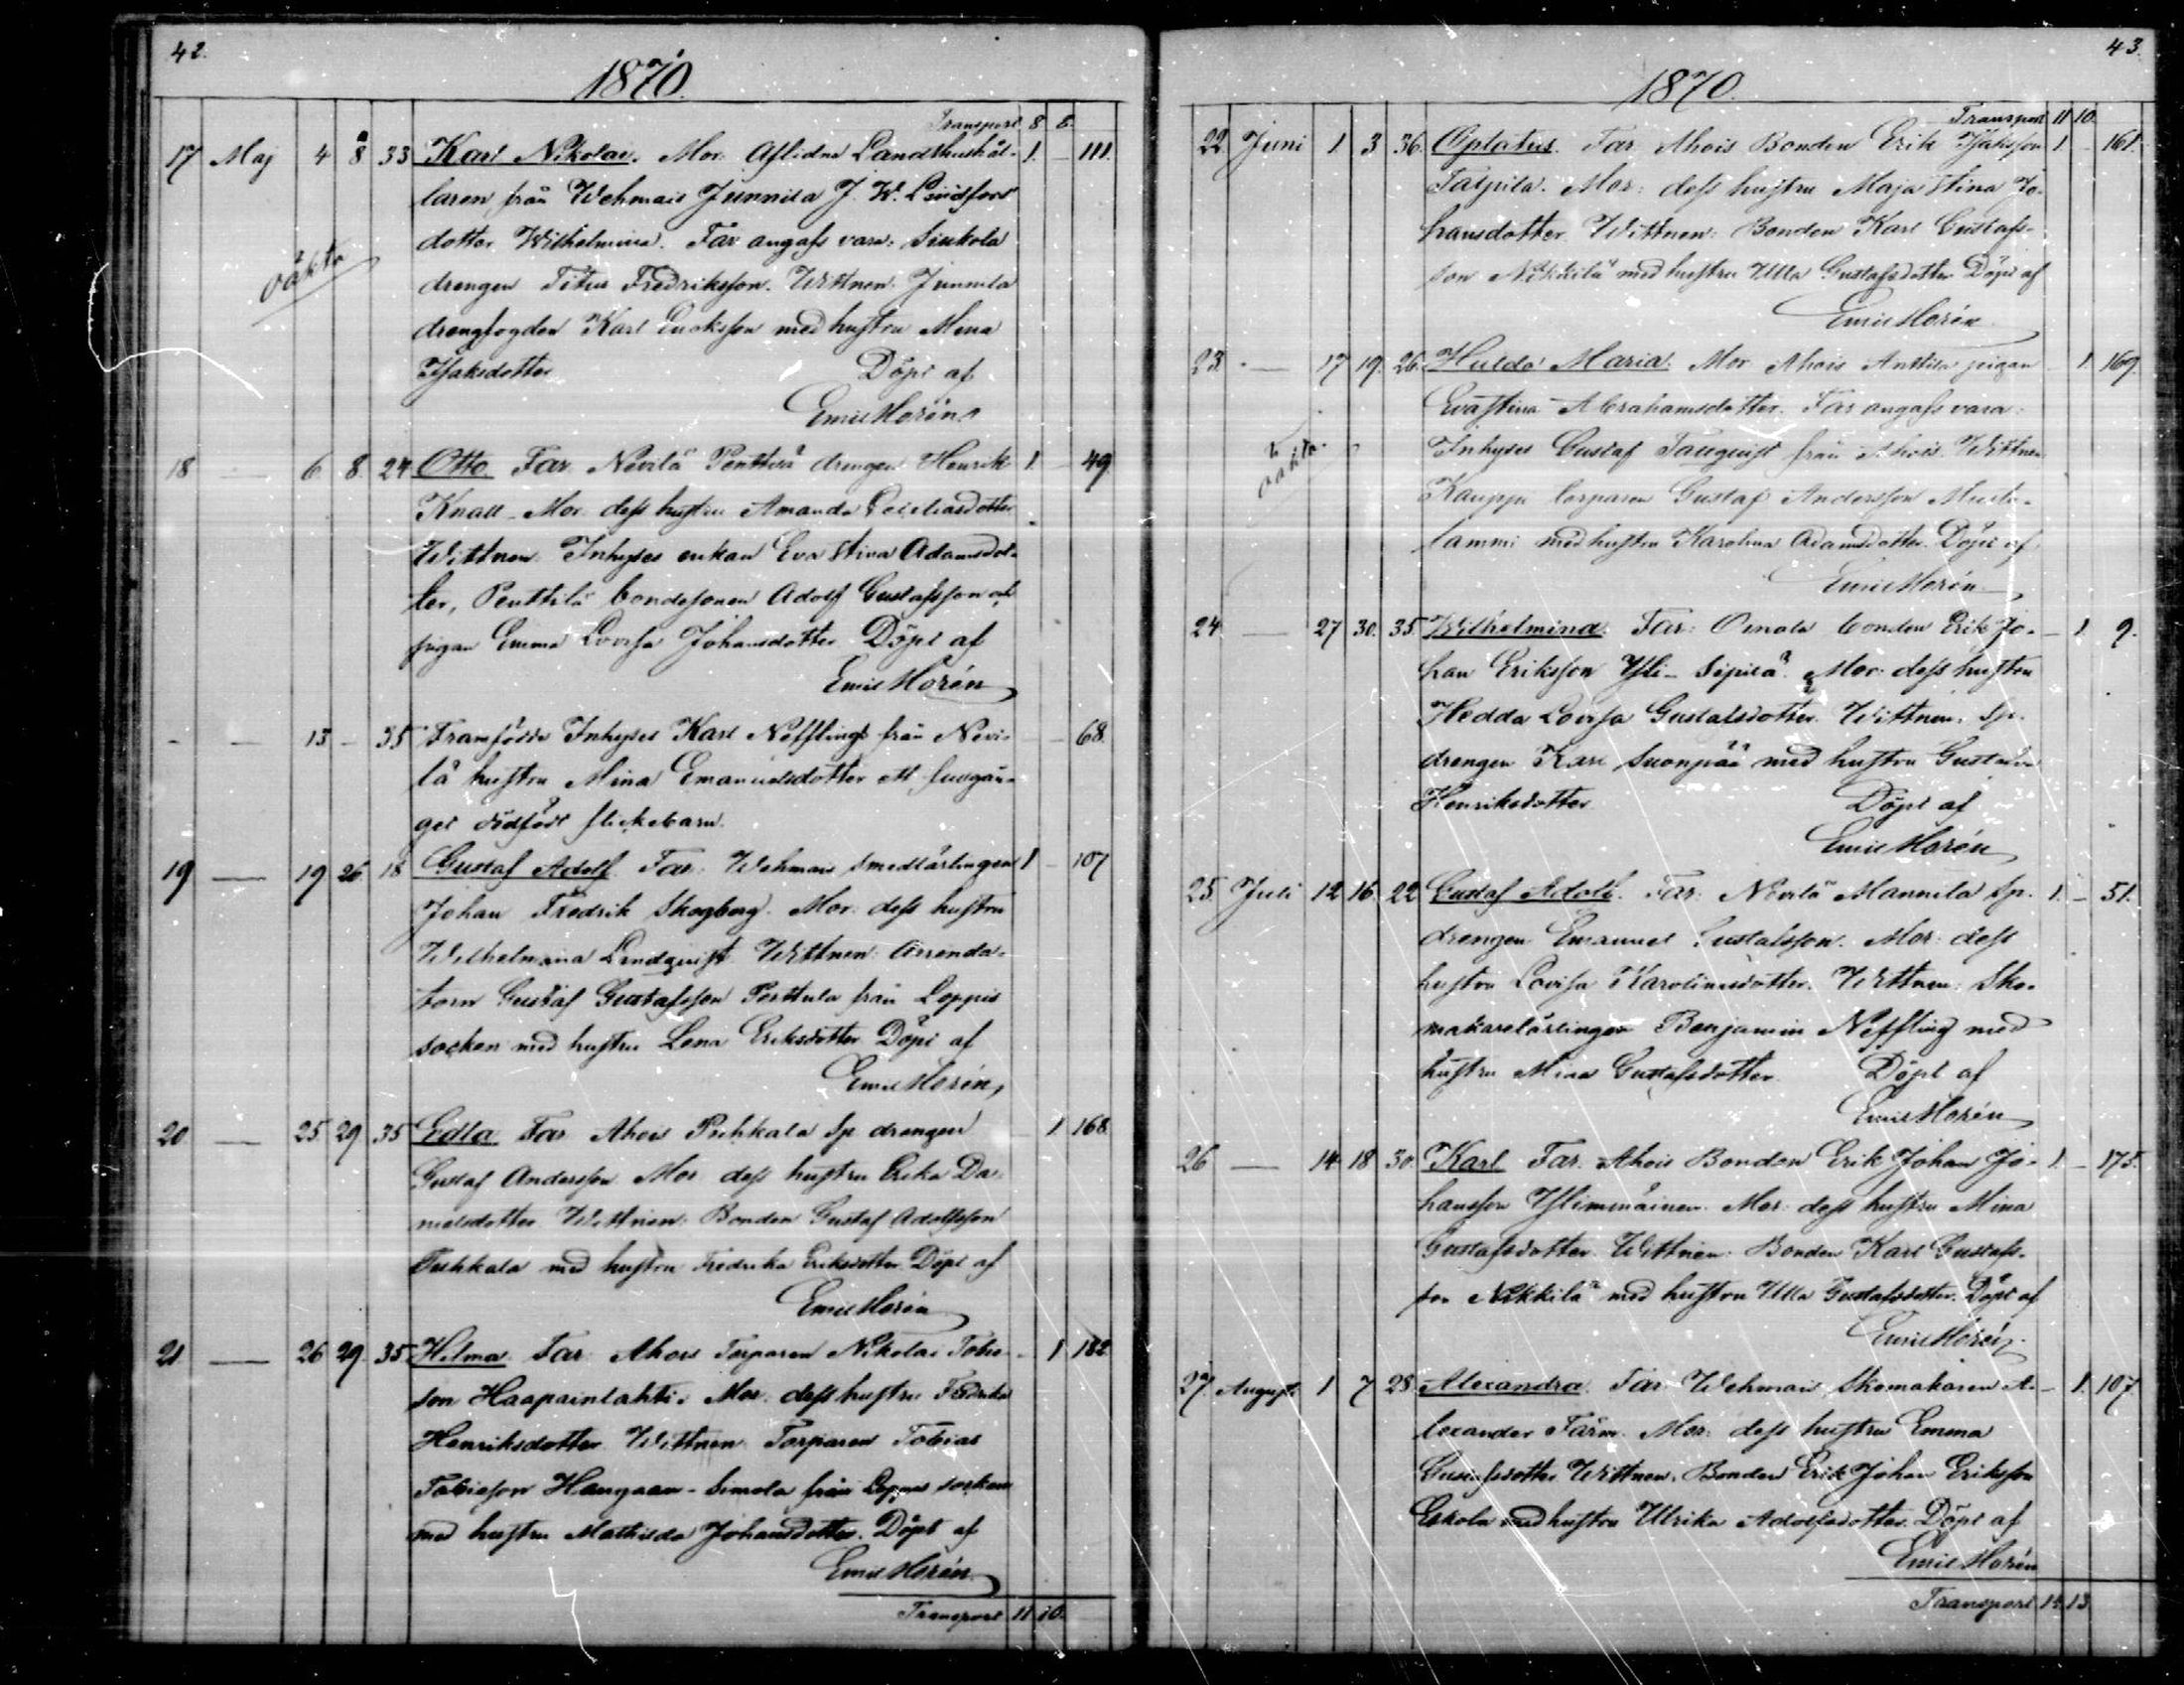 42.
1870.
Transport 8 8.
17 Maj 4 8 33 Karl Nikolai. Mor: Aflidne Landthushål- 1. - 111.
laren från Wehmais Junnila J. W. Lindfors
dotter Wilhelmina. Far angafs vara: Siukola
oäkta
drengen Titus Fredriksson. Wittnen: Junnila
drengfogden Karl Eriksson med hustru Mina
Isaksdotter Döpt af
Emil Horén
18 — 6. 8. 24 Otto. Far: Nevilä Penttilä drengen Henrik 1. - 49.
Knall. Mor: dess hustru Amanda
Wittnen: Inhyses enkan Eva Stina Adamsdot-
ter, Penttilä bondesonen Adolf Gustafsson och
pigan Emma Lovisa Johansdotter Döpt af
Emil Horén
- — 13 - 35 Framfödde Inhyses Karl Neffling från Nevi- - - 68.
lä hustru Mina Emanuelsdotter ett
get dödfödt flickebarn.
19 — 19 26 18 Gustaf Adolf. Far: Wehmais smedlärlingen 1 - 107
Johan Fredrik Skogberg. Mor: dess hustru
Wilhelmina Lindquist. Wittnen: Arrenda-
torn Gustaf Gustafsson Perttula från Loppis
socken med hustru Lena Eriksdotter Döpt af
Emil Horén
20 — 25 29 35 Edla. Far: Ahois Puhkala Sp. drengen - 1 168
Gustaf Andersson Mor: dess hustru Erika Da-
nielsdotter Wittnen: Bonden Gustaf Adolfsson
Puhkala med hustru Fredrika Eriksdotter Döpt af
Emil Horén
21 — 26 29. 35 Hilma. Far: Ahois Torparen Nikolai Tobias- - 1 182
son Haapainlahti. Mor: dess hustru Fredrika
Henriksdotter Wittnen: Torparen Tobias
Tobiasson Haugaan-Simola från Loppis socken
med hustru Mathilda Johansdotter. Döpt af
Emil Horén
Transport 11 10.
43.
1870.
Transport 11 10.
22 Juni 1 3 36. Optatus. Far: Ahois Bonden Erik Isaksson 1 - 161.
Taipila. Mor: dess hustru Maja Stina Jo-
hansdotter Wittnen: Bonden Karl Gustafs-
son Nikkilä med hustru Ulla Gustafsdotter Döpt af
Emil Horén
23. — 17 19. 26. Hulda Maria: Mor: Ahois Anttila pigan - 1. 169.
Evastina Abrahamsdotter. Far angafs vara:
oäkta
Inhyses Gustaf Tauquist från Ahois. Wittnen:
Kauppi torparen Gustaf Andersson Musta-
lammi med hustru Karolina Adamsdotter. Döpt af
Emil Horén
24. — 27 30. 35. Wilhelmina. Far: Omala bonden Erik Jo- - 1 9.
han Eriksson Yli-Sipilä. Mor: dess hustru
Hedda Lovisa Gustafsdotter Wittnen: Sp.
drengen Karl Suonpää med hustru Gustafva
Henriksdotter Döpt af
Emil Horén
25. Juli 12 16. 22 Gustaf Adolf. Far: Nevilä Mannila Sp. 1. - 51.
drengen Emanuel Gustafsson. Mor: dess
hustru Lovisa Karolinasdotter. Wittnen: Sko-
makarelärlingen Benjamin Neffling med
hustru Mina Gustafsdotter Döpt af
Emil Horén
26 — 14 18 30. Karl Far: Ahois Bonden Erik Johan Jo- 1. - 175.
hansson Ylimmäinen. Mor: dess hustru Mina
Gustafsdotter Wittnen: Bonden Karl Gustafs-
son Nikkilä med hustru Ulla Gustafsdotter. Döpt af
Emil Horén
27. Augusti 1 7 28. Alexandra. Far: Wehmais Skomakaren A- - 1. 107
lexander Färm. Mor: dess hustru Emma
Gustafsdotter Wittnen: Bonden Erik Johan Eriksson
Eskola med hustru Ulrika Adolfsdotter. Döpt af
Emil Horén
Transport 14 13